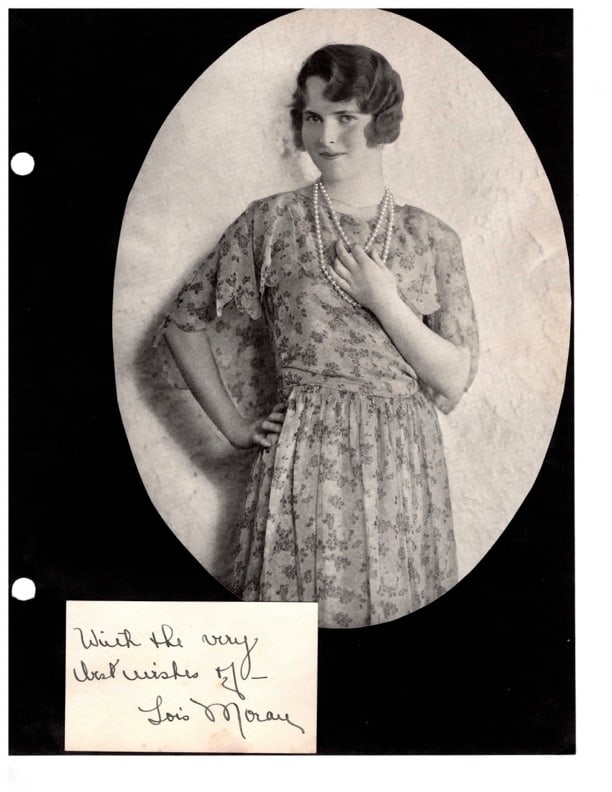 With the very
best wishes of –
Lois Moran